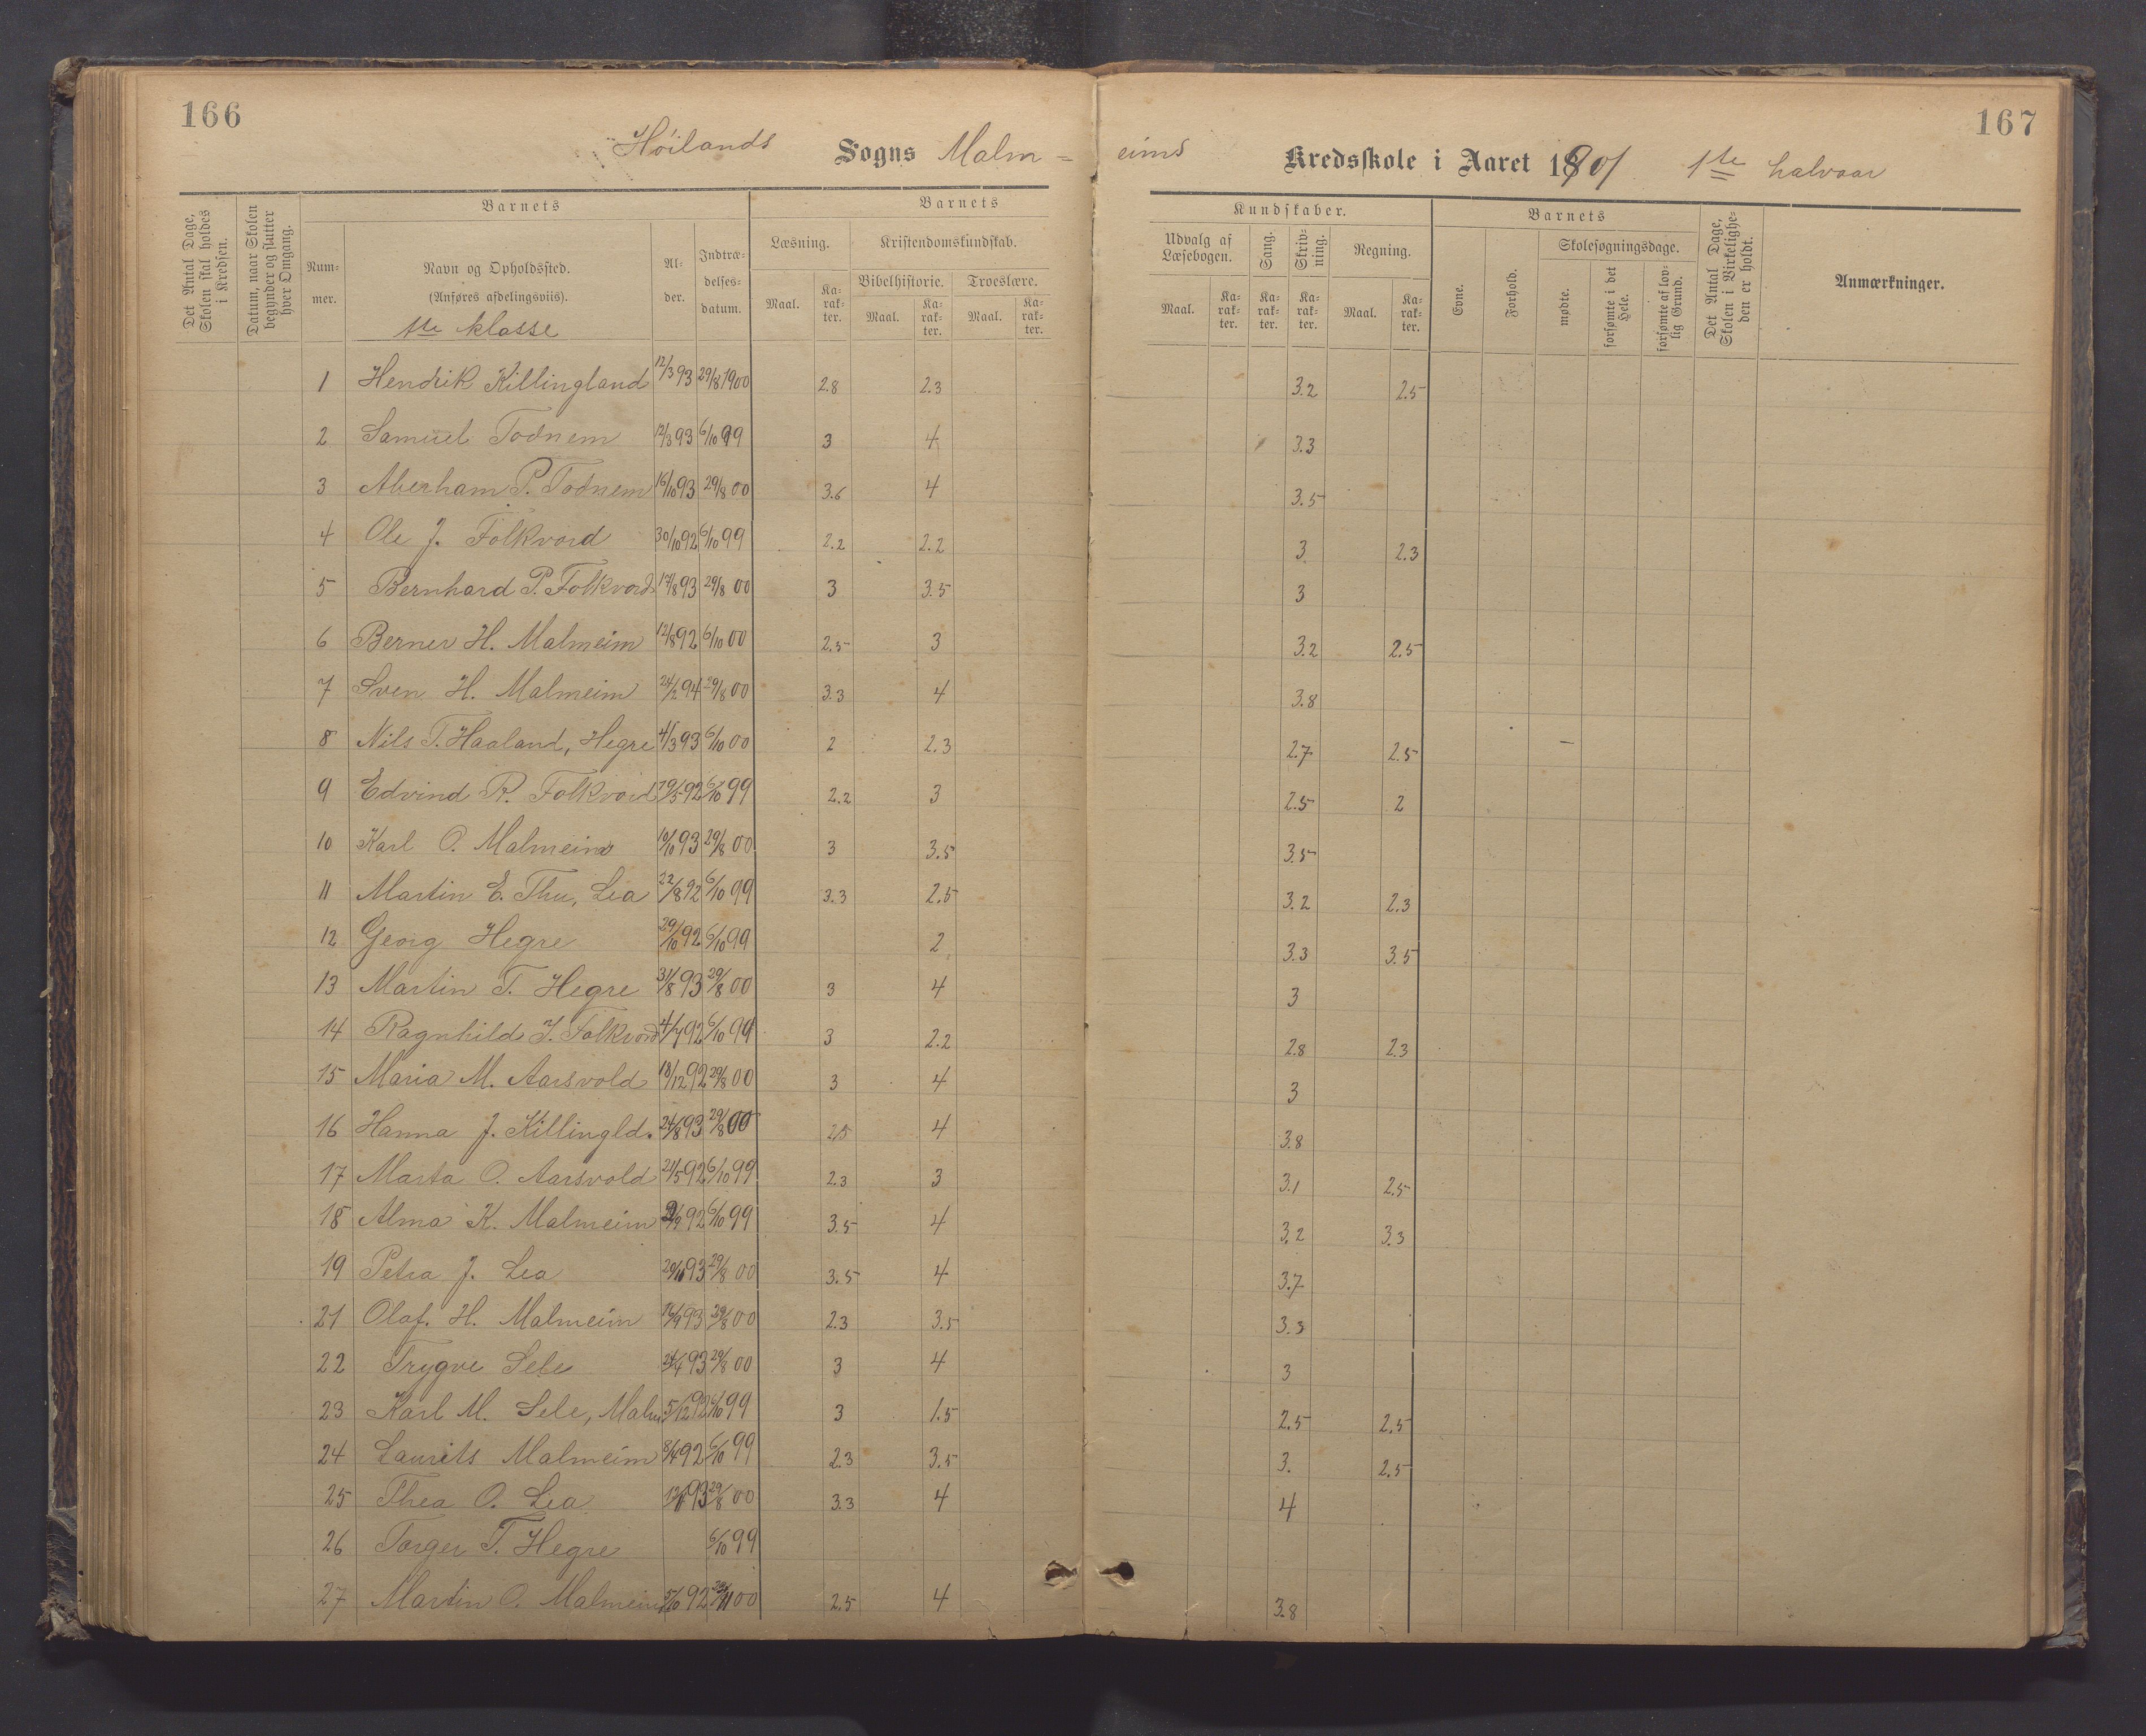 166
167
Höilands Sogns Malm= eims Kredsskole i Aaret 1901 1ste halvaar
Det Antal Dage, Skolen skal holdes i Kredsen.
Datum, naar Skolen begynder og slutter hver Omgang.
Barnets
Nummer.
Navn og Opholdssted.
(Anføres afdelingsviis).
1ste klasse
Alder.
Indtrædelsesdatum.
Barnets
Læsning.
Maal.
Karakter.
Kristendomskundskab.
Bibelhistorie.
Maal.
Karakter.
Troeslære.
Maal.
Karakter.
Kundskaber.
Udvalg af Læsebogen.
Maal.
Karakter.
Sang.
Karakter.
Skrivning.
Karakter.
Regning.
Maal.
Karakter.
Barnets
Evne.
Forhold.
Skolesøgningsdage.
mødte.
forsømte i det Hele.
forsømte af lovlig Grund.
Det Antal Dage, Skolen i Virkeligheden er holdt.
Anmærkninger.
1 Hendrik Killingland 12/3 93 29/8 1900 2.8 2.3 3.2 2.5
2 Samuel Todnem 12/3 93 6/10 99 3 4 3.3
3 Aberham P. Todnem 16/10 93 29/8 00 3.6 4 3.5
4 Ole J. Folkvord 30/10 92 6/10 99 2.2 2.2 3 2.3
5 Bernhard P. Folkvord 17/8 93 29/8 00 3 3.5 3
6 Berner H. Malmeim 12/8 92 6/10 00 2.5 3 3.2 2.5
7 Sven H. Malmeim 24/2 94 29/8 00 3.3 4 3.8
8 Nils T. Haaland, Hegre 4/3 93 6/10 00 2 2.3 2.7 2.5
9 Edvind R. Folkvord 29/5 92 6/10 99 2.2 3 2.5 2
10 Karl O. Malmeim 10/10 93 29/8 00 3 3.5 3.5
11 Martin E. Thu, Lea 22/8 92 6/10 99 3.3 2.5 3.2 2.3
12 Georg Hegre 29/10 92 6/10 99 2 3.3 3.5
13 Martin T. Hegre 31/8 93 29/8 00 3 4 3
14 Ragnhild J. Folkvord 4/7 92 6/10 99 3 2.2 2.8 2.3
15 Maria M. Aarsvold 18/12 92 29/8 00 3 4 3
16 Hanna J. Killingld. 24/8 93 29/8 00 2.5 4 3.8
17 Marta O. Aarsvold 21/5 92 6/10 99 2.3 3 3.1 2.5
18 Alma K. Malmeim 92 6/10 99 3.5 4 3.2 3.3
19 Petra J. Lea 93 29/8 00 3.5 4 3.7
21 Olaf. H. Malmeim 16/9 93 29/8 00 2.3 3.5 3.3
22 Trygve Sele 24/4 93 29/8 00 3 4 3
23 Karl M. Sele, Malm 5/12 92 6/10 99 3 1.5 2.5 2.5
24 Laurits Malmeim 8/4 92 6/10 99 2.3 3.5 3. 2.5
25 Thea O. Lea 93 29/8 00 3.3 4 4
26 Torger T. Hegre 6/10 99
27 Martin O. Malmeim 5/10 92 00 2.5 4 3.8